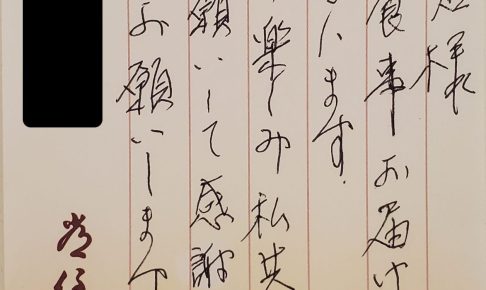 様
食事お届け
います.
楽しみ私共
願いして感謝
お願いします